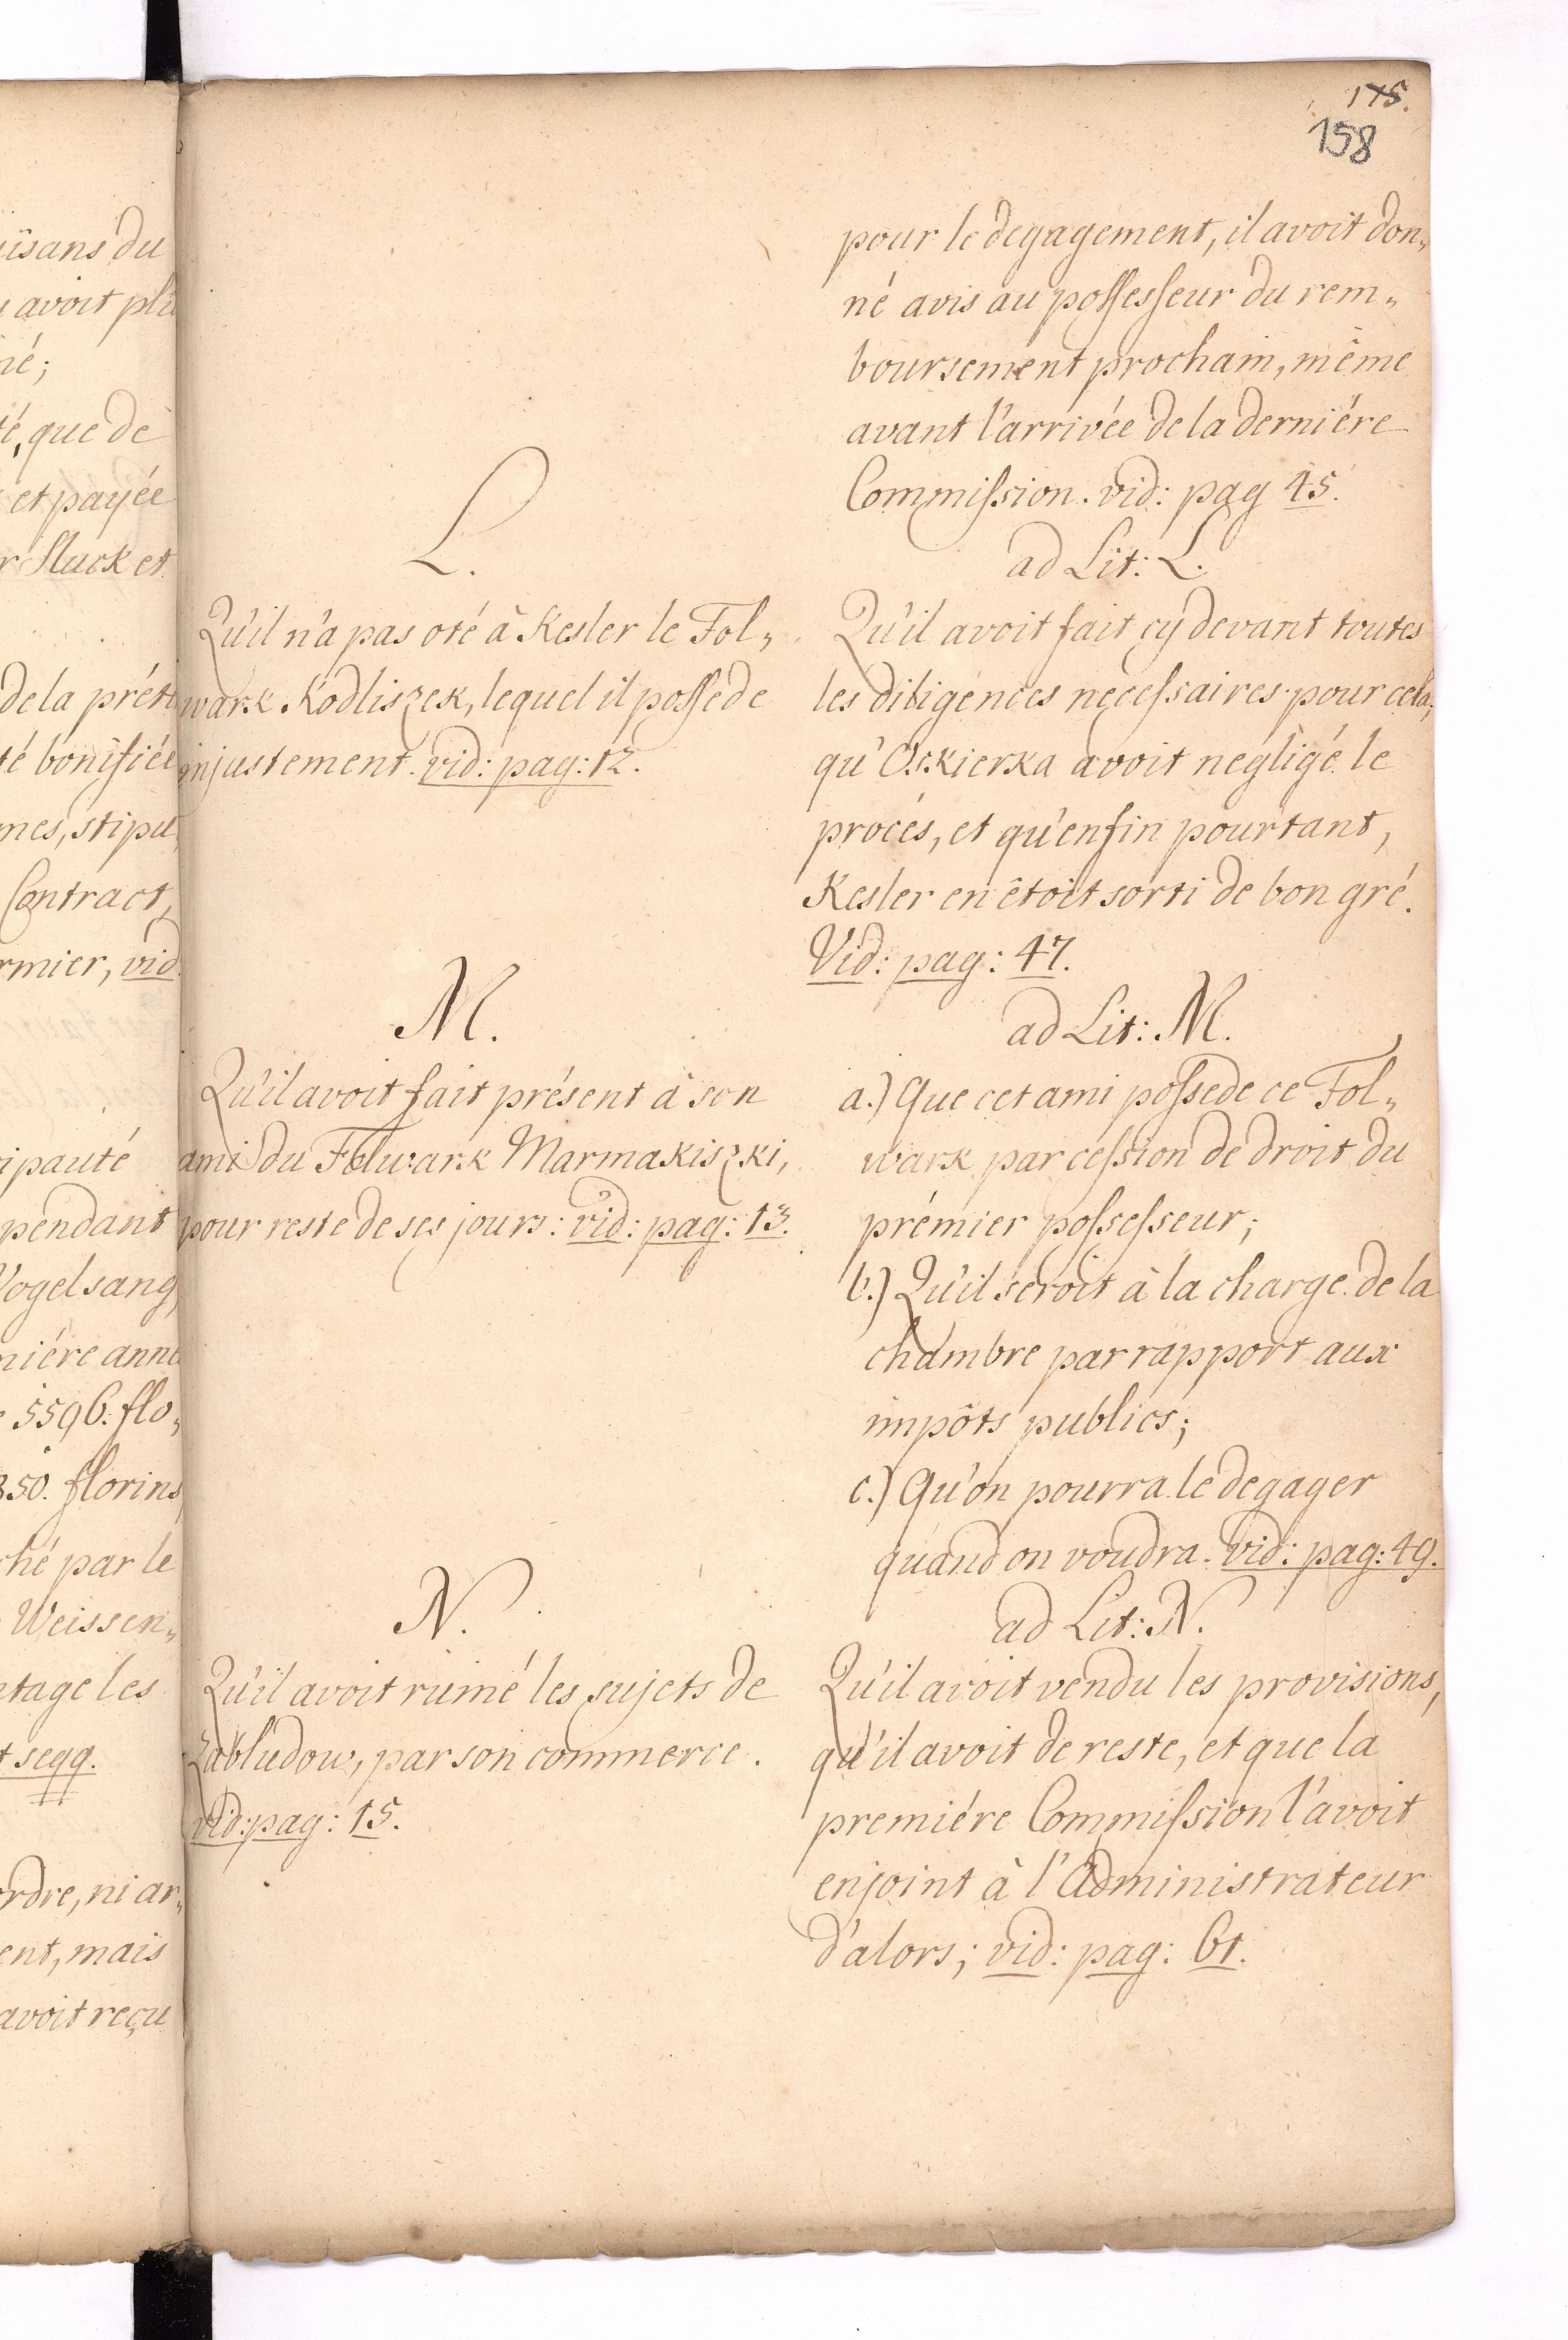 175.
158
üsans du
avoit plu
né;
té, que de
et payée
r Sluck et
de la préte
té bonifiée
mes, stipu
Contract,
rmier, vid
ipauté
pendant
Vogelsang
miére anné
5596. flo„
350. florins
ché par le
Weissen„
tage les
t seqq.
ordre, ni ar„
ent, mais
avoit reçu
L.
Qu'il n'a pas oté à Kesler le Fol„
wark Kodliszek, lequel il possede
injustement. vid: pag: 12.
M.
Qu'il avoit fait présent à son
ami du Folwark Marmakiszki,
pour reste de ses jours: vid: pag: 13.
N.
Qu'il avoit ruiné les sujets de
Zabludow, par son commerce.
vid: pag: 15.
pour le degagement, il avoit don„
né avis au possesseur du rem„
boursement prochain, même
avant l'arrivée de la derniére
Commission. vid: pag 45.
ad Lit: L.
Qu'il avoit fait cy devant toutes
les diligences necessaires pour cela;
qu'Oskierka avoit negligé le
procés, et qu'enfin pourtant,
Kesler en êtoit sorti de bon gré.
Vid: pag: 47.
ad Lit: M.
a.) Que cet ami possede ce Fol„
wark par cession de droit du
prémier possesseur;
b.) Qu'il seroit à la charge de la
chambre par rapport aux
impôts publics;
c.) Qu'on pourra le degager
quand on voudra. vid: pag: 49.
ad Lit: N.
Qu'il avoit vendu les provisions,
qu'il avoit de reste, et que la
premiére Commission l'avoit
enjoint à l'Administrateur
d'alors; vid: pag: 61.